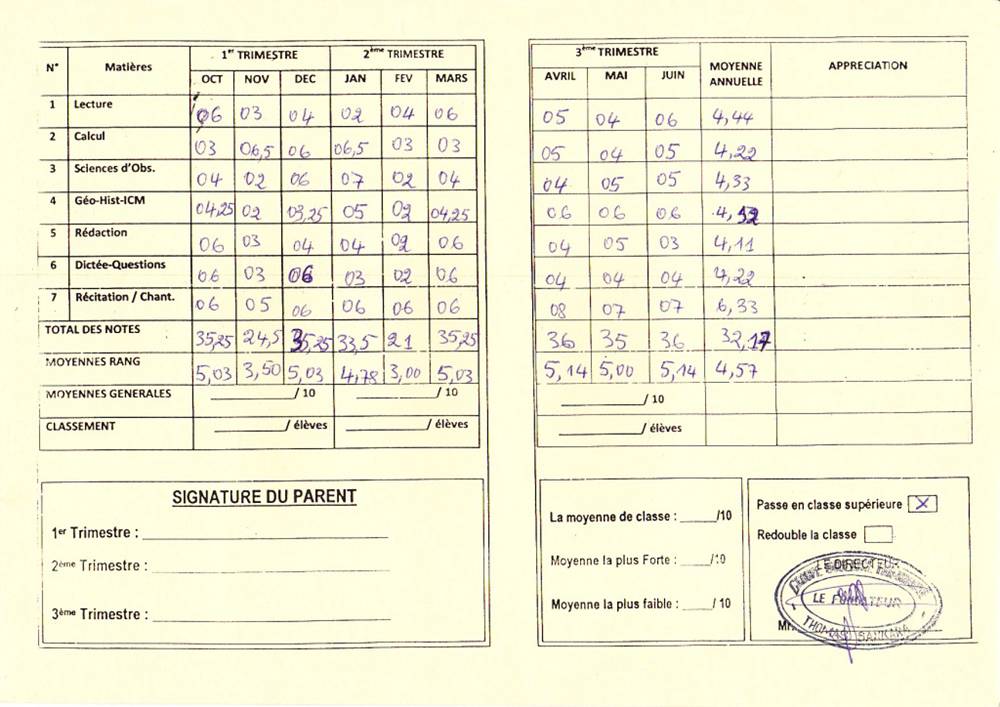 N° Matières 1er TRIMESTRE 2ème TRIMESTRE 3ème TRIMESTRE MOYENNE ANNUELLE APPRECIATION
OCT NOV DEC JAN FEV MARS AVRIL MAI JUIN
1 Lecture 06 03 04 02 04 06 05 04 06 4,44
2 Calcul 03 06,5 06 06,5 03 03 05 04 05 4,22
3 Sciences d'Obs. 04 02 06 07 02 04 04 05 05 4,33
4 Géo-Hist-ICM 04,25 02 03,25 05 02 04,25 06 06 06 4,52
5 Rédaction 06 03 04 04 02 06 04 05 03 4,11
6 Dictée-Questions 06 03 06 03 02 06 04 04 04 4,22
7 Récitation / Chant. 06 05 06 06 06 06 08 07 07 6,33
TOTAL DES NOTES 35,25 24,5 35,25 33,5 21 35,25 36 35 36 32,17
MOYENNES RANG 5,03 3,50 5,03 4,78 3,00 5,03 5,14 5,00 5,14 4,57
MOYENNES GENERALES ________/ 10 ________/ 10 ________/ 10
CLASSEMENT ________/ élèves ________/ élèves ________/ élèves
SIGNATURE DU PARENT
1er Trimestre : ________
2ème Trimestre :
3ème Trimestre : ________
La moyenne de classe : _____/10
Moyenne la plus Forte : _____/10
Moyenne la plus faible : ____/ 10
Passe en classe supérieure X
Redouble la classe
LE DIRECTEUR
LE FONDATEUR
THOMAS SANKARA